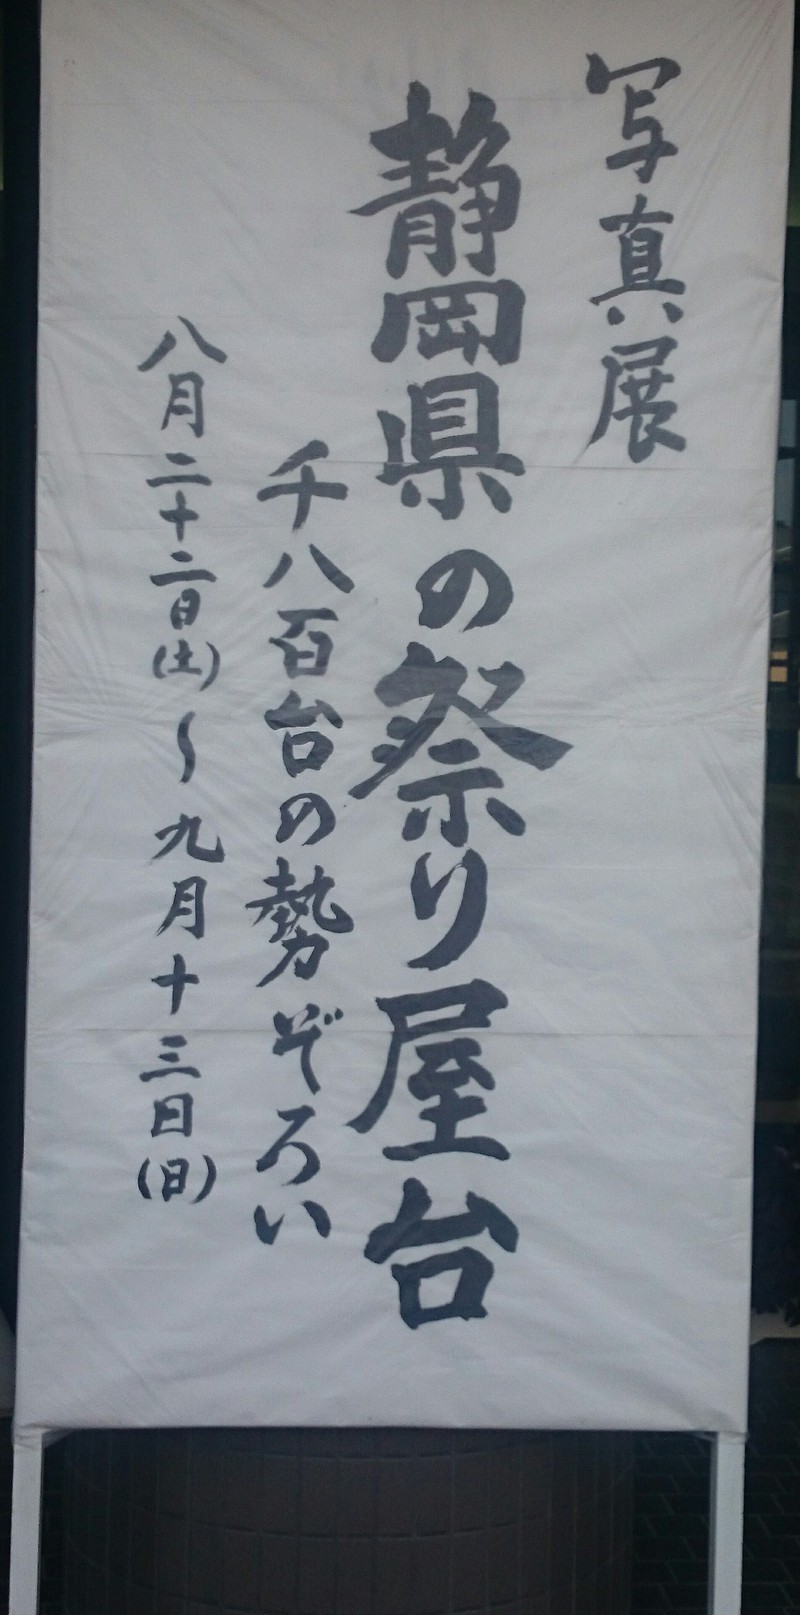 写真展
静岡県の祭り屋台
千八百台の勢ぞろい
八月二十二日(土)〜九月十三日(日)